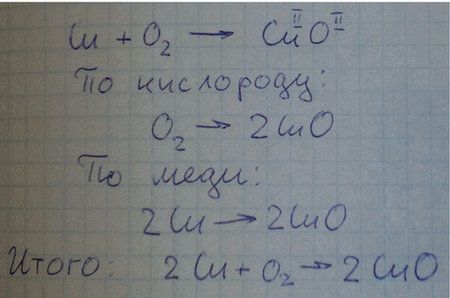 Cu + O₂ → CuᴵᴵOᴵᴵ
По кислороду:
O₂ → 2CuO
По меди:
2Cu → 2CuO
Итого: 2Cu + O₂ → 2CuO